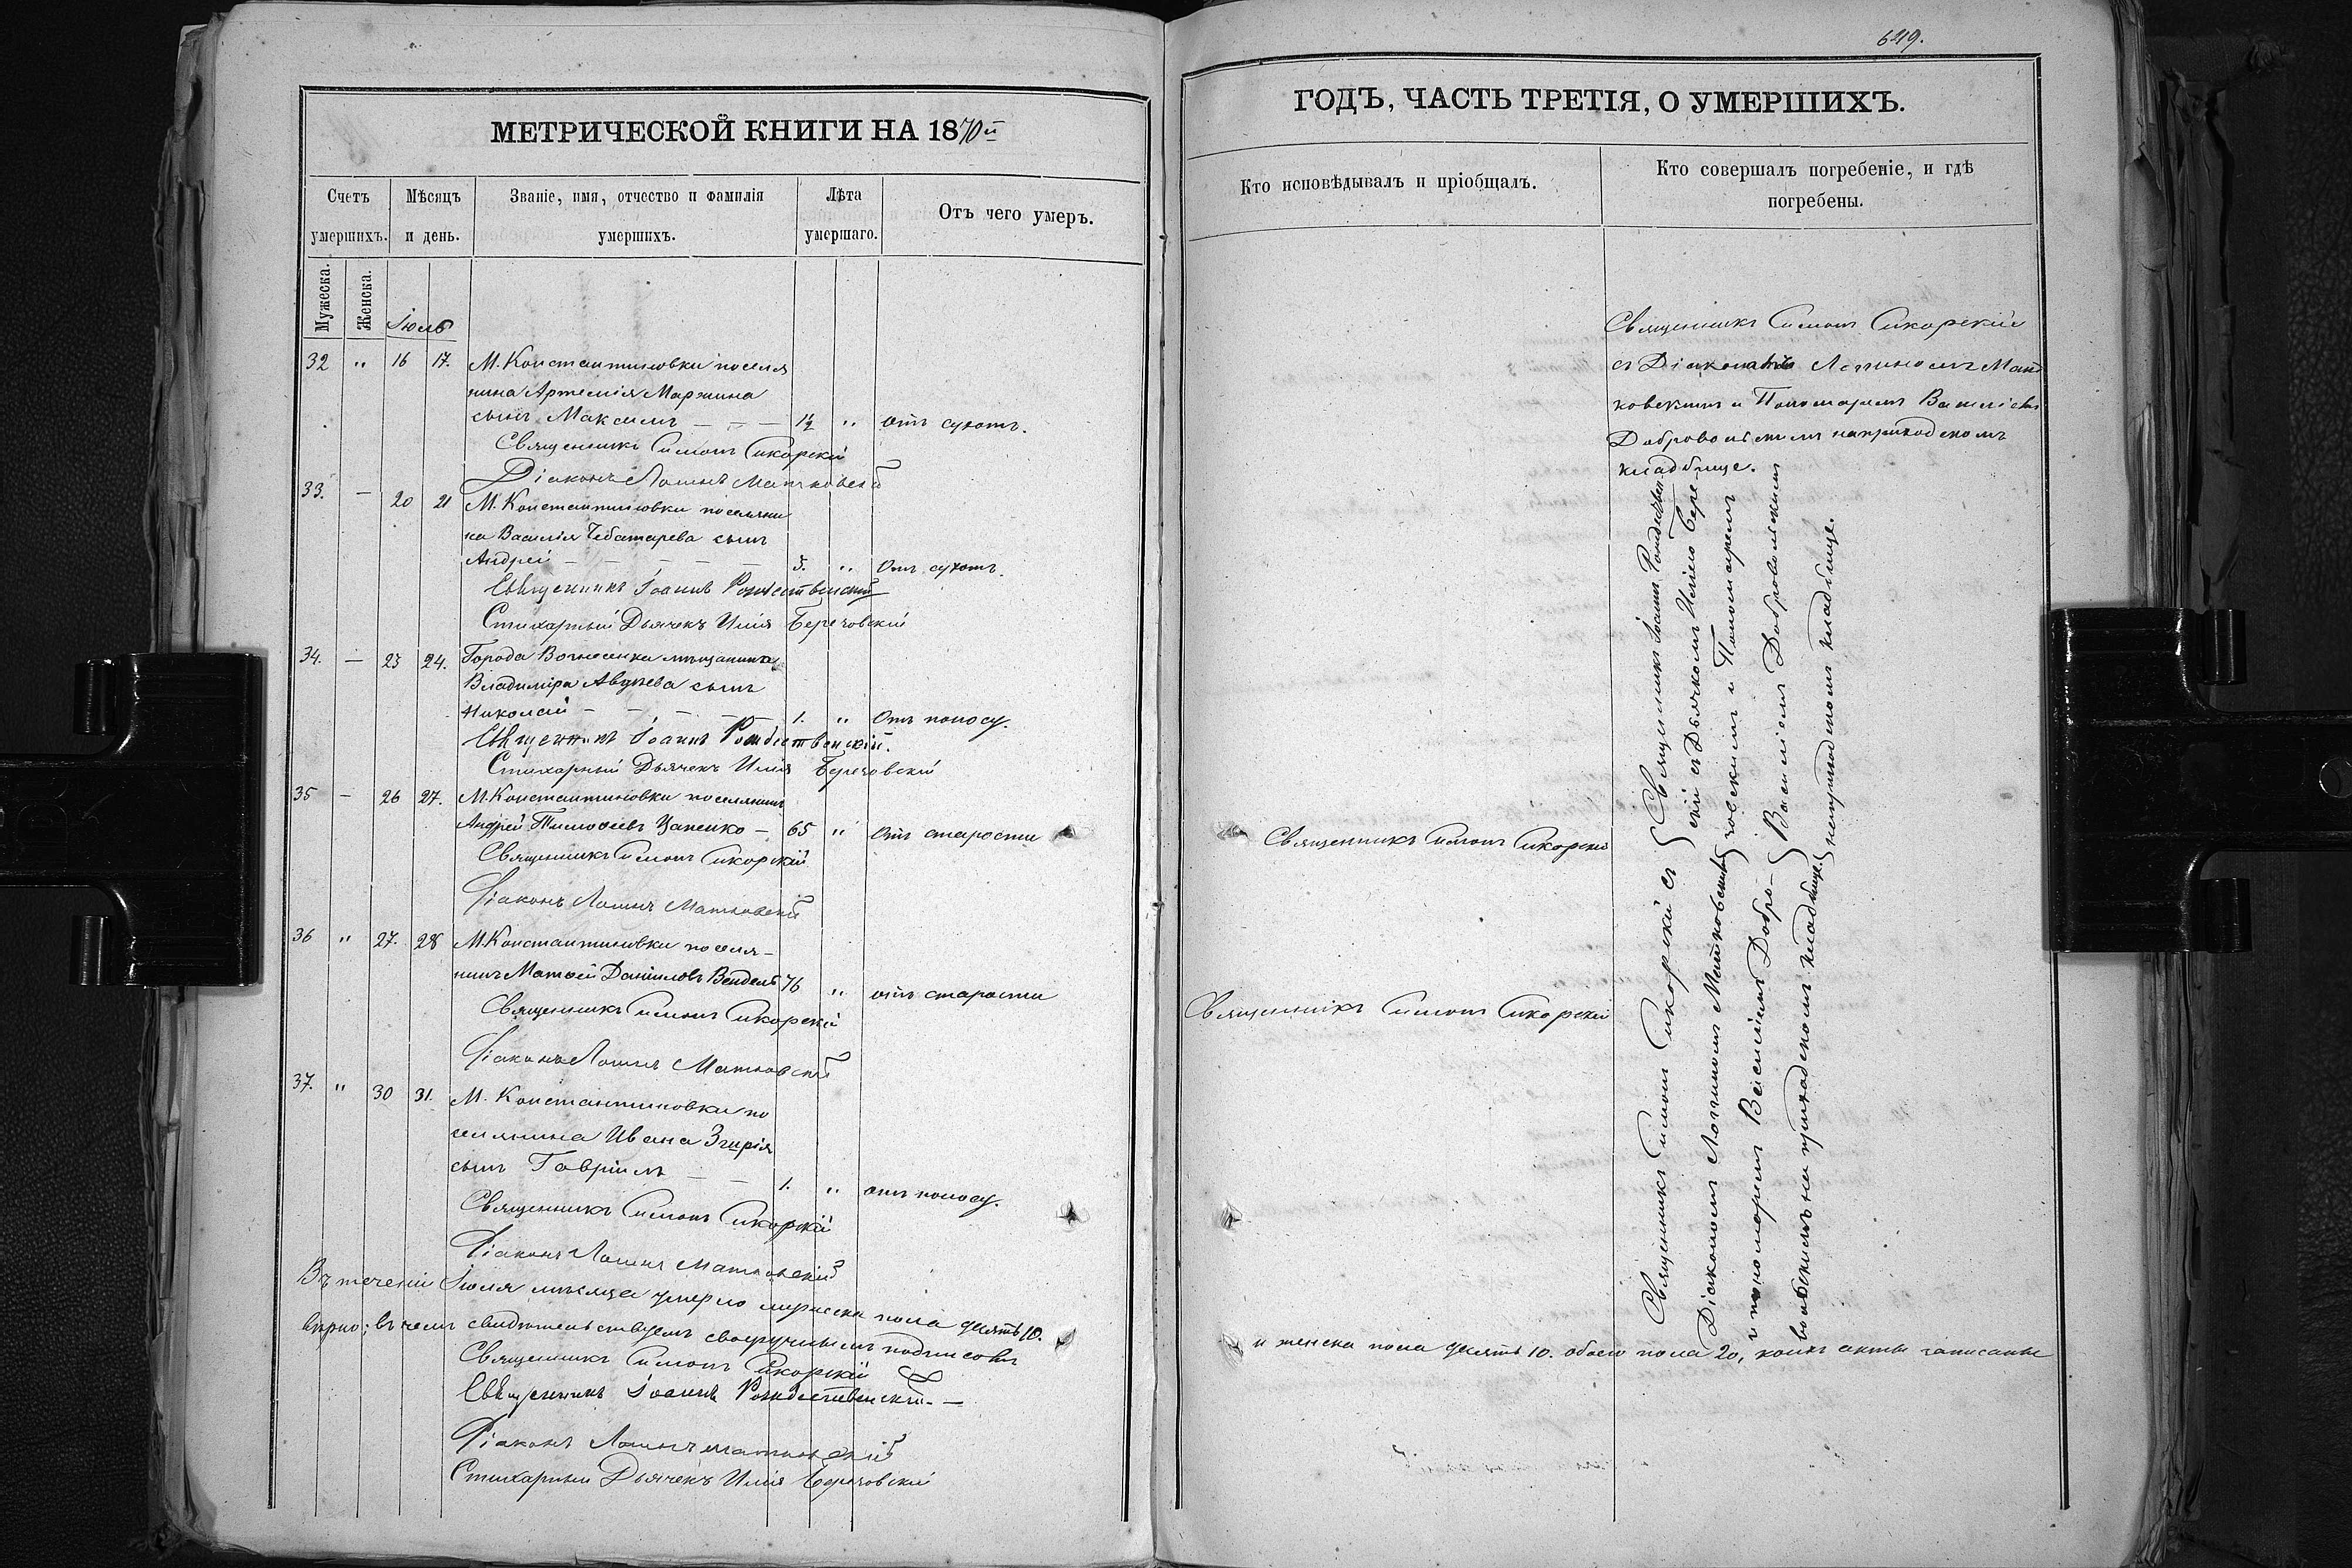 649.
МЕТРИЧЕСКОЙ КНИГИ НА 1870й
Счетъ умершихъ.
Мѣсяцъ и день.
Званіе, имя, отчество и фамилія умершихъ.
Лѣта умершаго.
Отъ чего умеръ.
Мужеска.
Женска.
Іюль
32 " 16 17. М. Константиновки поселя
нина Артемія Маржина
сынъ Максимъ — — — 1½ " отъ сухотъ.
Священникъ Симонъ Сикорскій
Діаконъ Логинъ Матковскій
33. — 20 21 М. Константиновки поселяни
на Василія Чеботарева сынъ
Андрей — — — — — 5. " Отъ сухотъ.
Священникъ Іоаннъ Рождественскій
Стихарный Дьячекъ Илія Березовскій
34. — 23 24. Города Вознесенка мѣщанина
Владиміра Авдѣева сынъ
Николай — — — — — 1. " Отъ поносу.
Священникъ Іоаннъ Рождественскій.
Стихарный Дьячекъ Илія Березовскій
35 — 26 27. М. Константиновки поселянинъ
Андрей Тимофеевъ Цапенко — 65 " Отъ старости
Священникъ Симонъ Сикорскій
Діаконъ Логинъ Матковскій
36 " 27. 28 М. Константиновки поселя-
нинъ Матѳей Даніиловъ Вендель 76 " отъ старости
Священникъ Симонъ Сикорскій
Діаконъ Логинъ Матковскій
37. " 30 31. М. Константиновки по
селянина Ивана Згирія
сынъ Гавріилъ — — 1. " отъ поносу.
Священникъ Симонъ Сикорскій
Діаконъ Логинъ Матковскій
Въ теченіи Іюля мѣсяца умерло мужеска пола десять 10.
вѣрно; въ чемъ свидѣтельствуемъ своеручнымъ подписомъ
Священникъ Симонъ Сикорскій
Священникъ Іоаннъ Рождественскій. —
Діаконъ Логинъ Матковскій
Стихарный Дьячекъ Илія Березовскій
ГОДЪ, ЧАСТЬ ТРЕТІЯ, О УМЕРШИХЪ.
Кто исповѣдывалъ и пріобщалъ.
Кто совершалъ погребеніе, и гдѣ
погребены.
Священникъ Симонъ Сикорскій
съ Діакономъ Логиномъ Мат
ковскимъ и Пономаремъ Василіемъ
Добровольскимъ на приходскомъ
кладбище.
Священникъ Іоаннъ Рождествен-
скій съ Дьячкомъ Иліею Бере-
зовскимъ и Пономаремъ
Василіемъ Добровольскимъ
на приходскомъ кладбище.
Священникъ Симонъ Сикорскій
Священникъ Симонъ Сикорскій
Священникъ Симонъ Сикорскій съ
Діакономъ Логиномъ Матковскимъ
и пономаремъ Василіемъ Добро-
вольскимъ на приходскомъ кладбище.
и женска пола десять 10. обоего пола 20, коихъ акты записаны